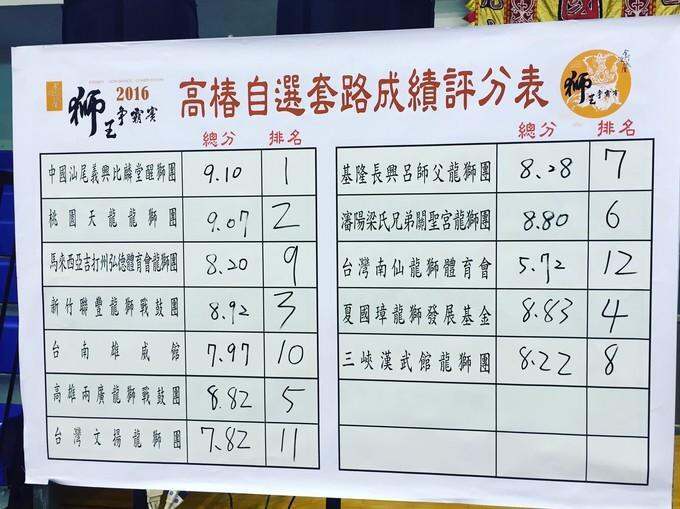 獅王爭霸賽
2016
高樁自選套路成績評分表
獅王爭霸賽
總分 排名
中國汕尾義興比麟堂醒獅團 9.10 1
桃園天龍龍獅團 9.07 2
馬來西亞吉打州弘德體育會龍獅團 8.20 9
新竹聯豐龍獅戰鼓團 8.92 3
台南雄威館 7.97 10
高雄兩廣龍獅戰鼓團 8.82 5
台灣文揚龍獅團 7.82 11
總分 排名
基隆長興呂師父龍獅團 8.28 7
瀋陽梁氏兄弟關聖宮龍獅團 8.80 6
台灣南仙龍獅體育會 5.72 12
夏國璋龍獅發展基金 8.83 4
三峽漢武館龍獅團 8.22 8